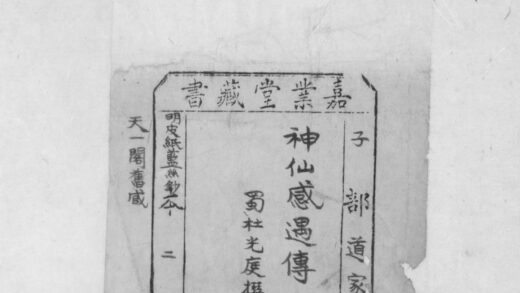 嘉業堂藏書
子部道家
神仙感遇傳
蜀杜光庭撰
明皮紙藍絲鈔本
二
天一閣舊藏